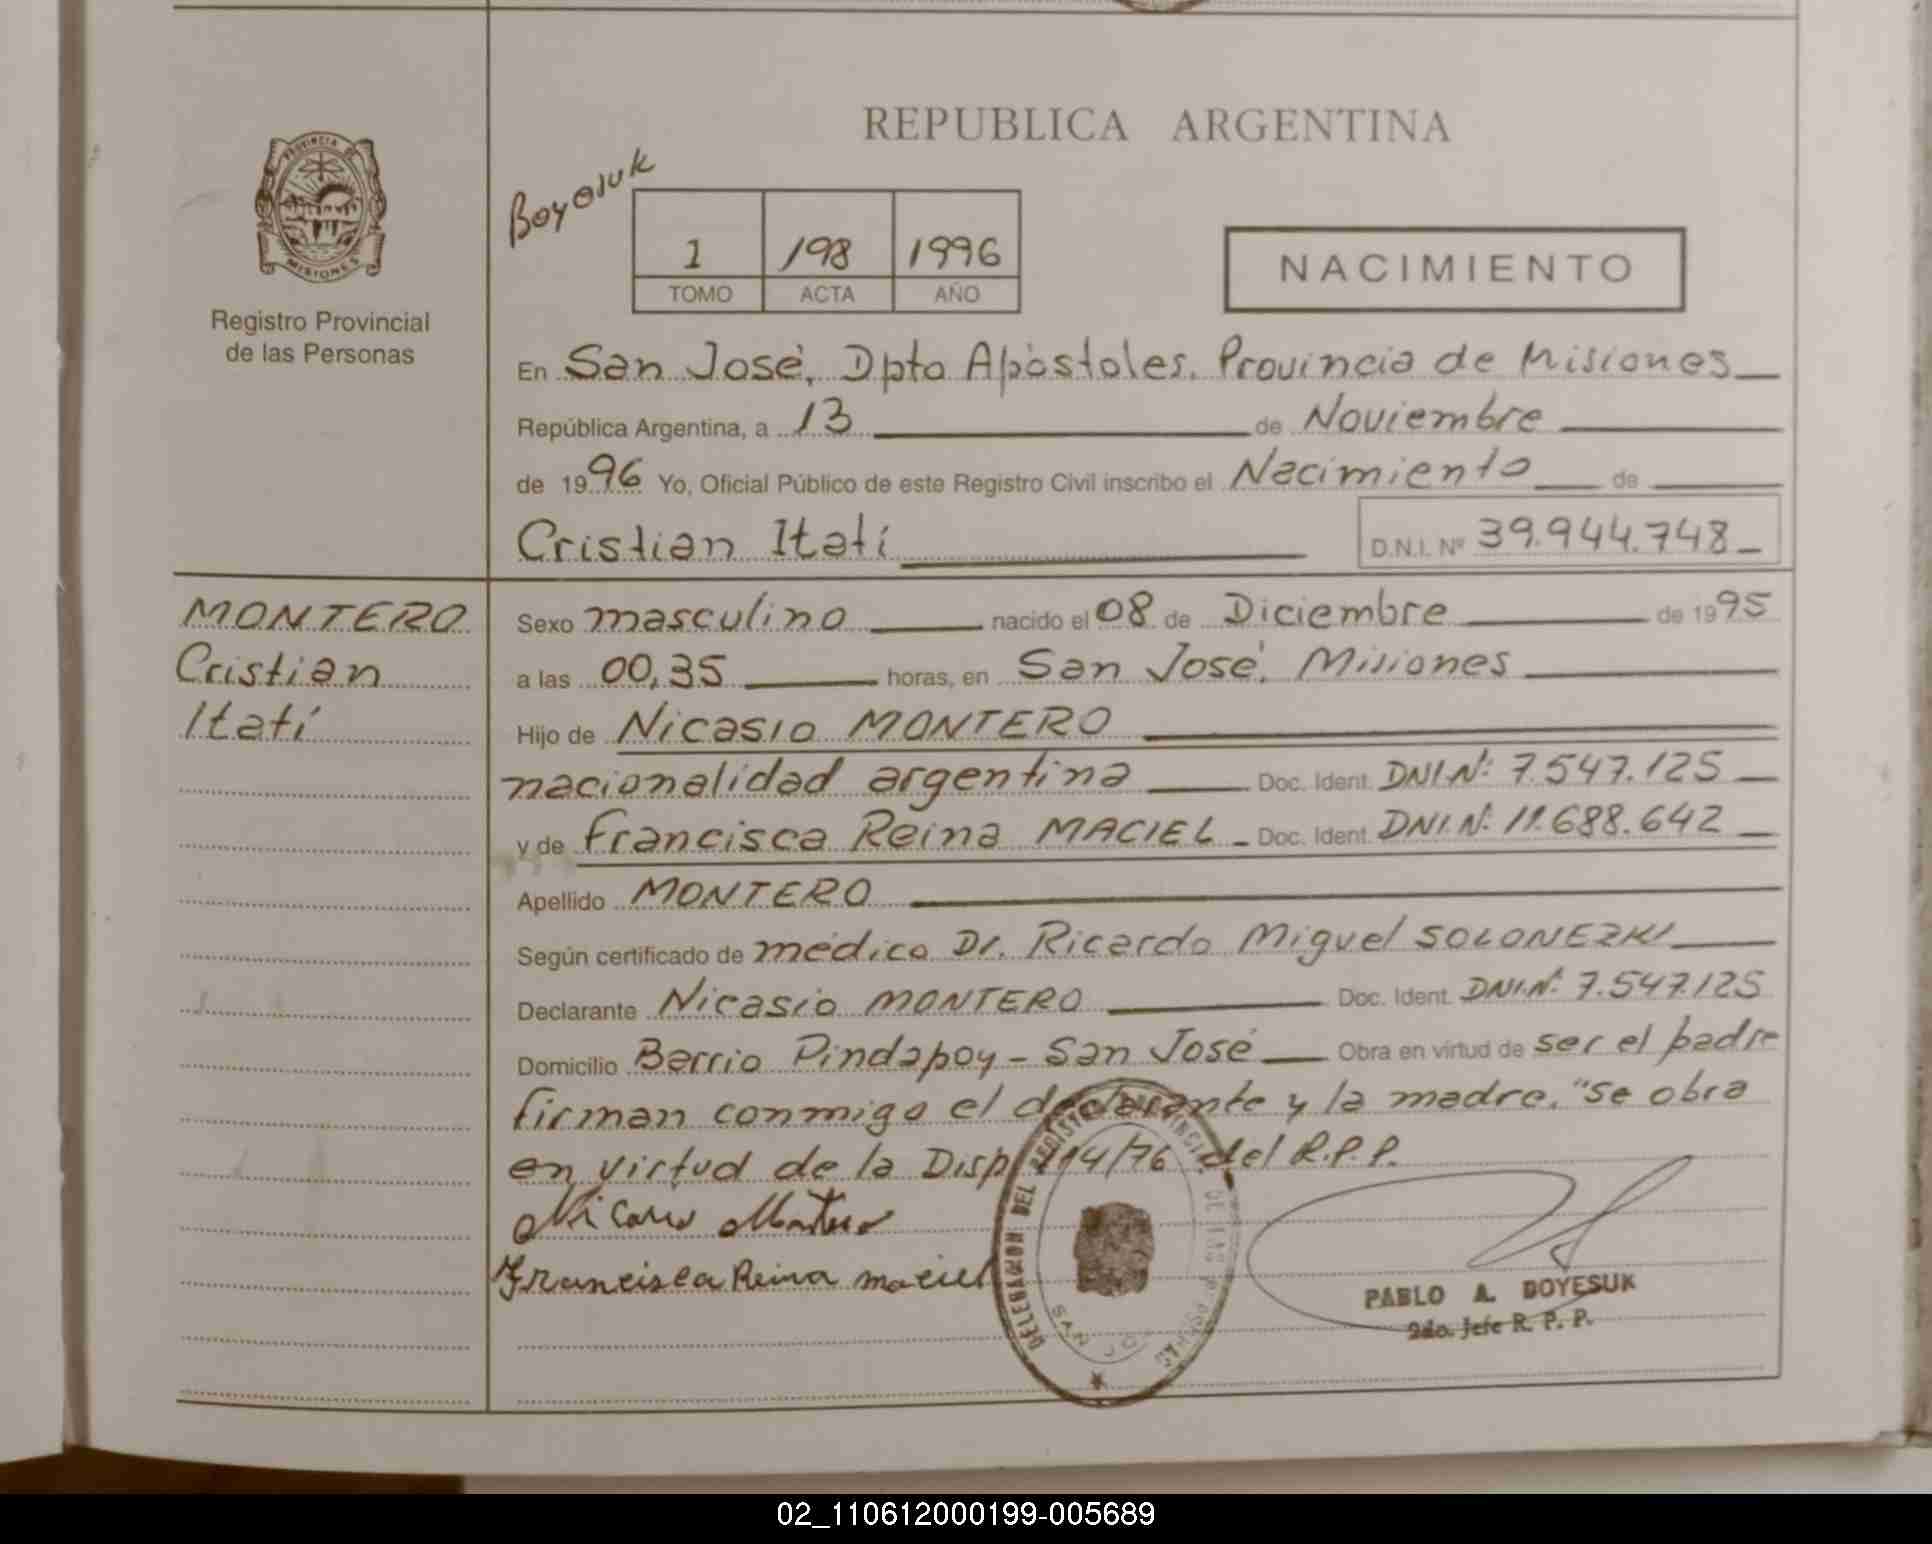 REPUBLICA ARGENTINA
PROVINCIA DE
MISIONES
Registro Provincial
de las Personas
Boyesuk
1 198 1996
TOMO ACTA AÑO
NACIMIENTO
En San José, Dpto Apóstoles. Provincia de Misiones
República Argentina, a 13 de Noviembre
de 1996 Yo, Oficial Público de este Registro Civil inscribo el Nacimiento de
Cristian Itatí D.N.I. Nº 39.944.748
MONTERO
Cristian
Itatí
Sexo masculino nacido el 08 de Diciembre de 1995
a las 00,35 horas, en San José, Misiones
Hijo de Nicasio MONTERO
nacionalidad argentina Doc. Ident. DNI.Nº: 7.547.125
y de Francisca Reina MACIEL Doc. Ident. DNI.Nº: 11.688.642
Apellido MONTERO
Según certificado de médico Dr. Ricardo Miguel SOLONEZKI
Declarante Nicasio MONTERO Doc. Ident. DNI.Nº: 7.547.125
Domicilio Barrio Pindapoy - San José Obra en virtud de ser el padre
firman conmigo el declarante y la madre. "Se obra
en virtud de la Disp. 114/76 del R.P.P.
Nicasio Montero
Francisca Reina maciel
DELEGACION DEL REGISTRO PROVINCIAL DE LAS PERSONAS
SAN JO
PABLO A. BOYESUK
2do. Jefe R. P. P.
02_110612000199-005689